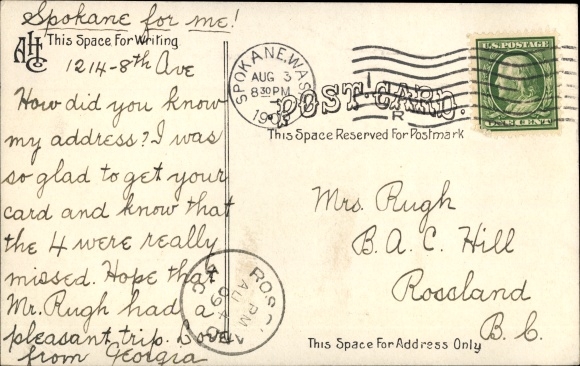 Spokane for me!
AHC
This Space For Writing
1214-8th Ave
How did you know
my address? I was
so glad to get your
card and know that
the 4 were really
missed. Hope that
Mr. Rugh had a
pleasant trip. Love
from Georgia
SPOKANE, WASH.
AUG 3
8 30 PM
190
POST CARD.
R
This Space Reserved For Postmark
U.S. POSTAGE
ONE CENT
Mrs. Rugh
B. A. C. Hill
Rossland
B. C.
ROSSLAND
PM
AU 4
09
B.C.
This Space For Address Only